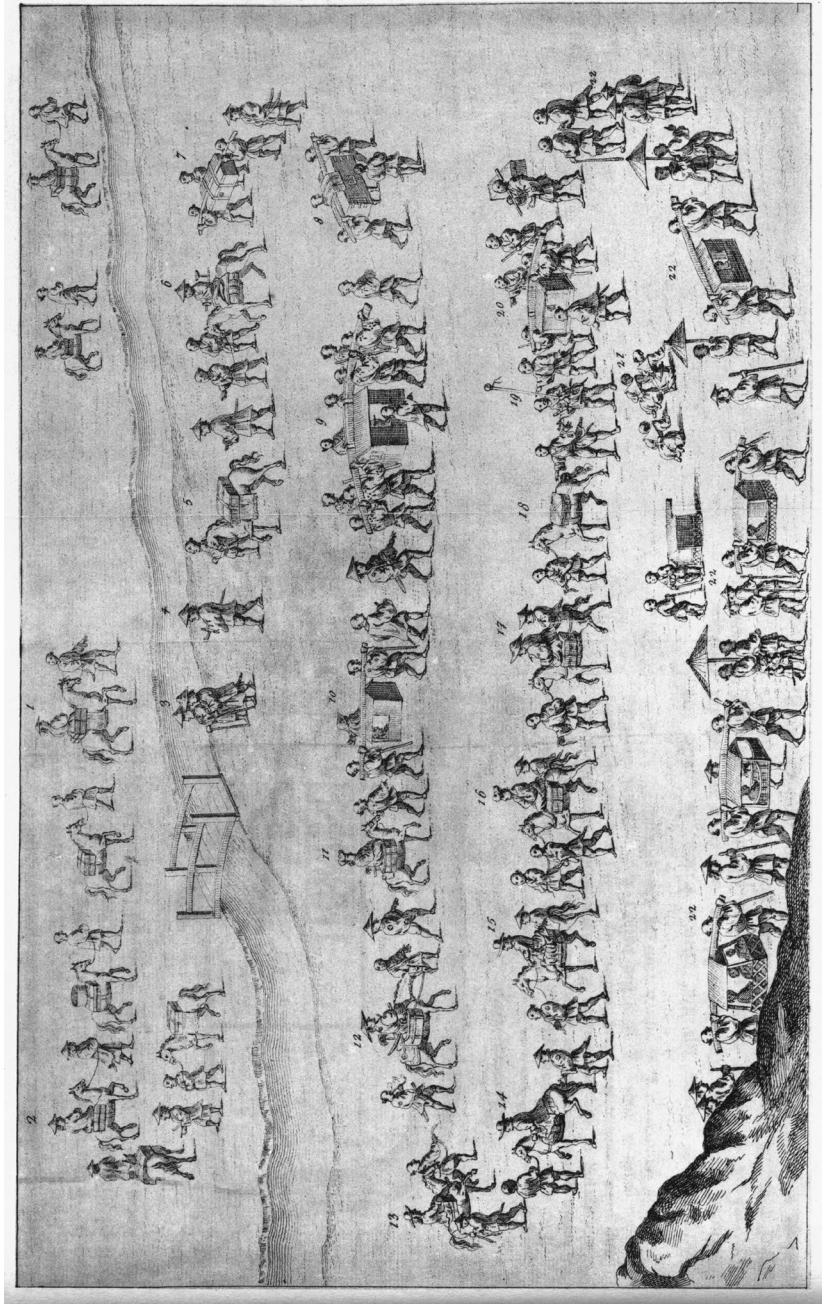 1
2
3
4
5
6
7
8
9
10
11
12
13
14
15
16
17
18
19
20
21
22
22
22
22